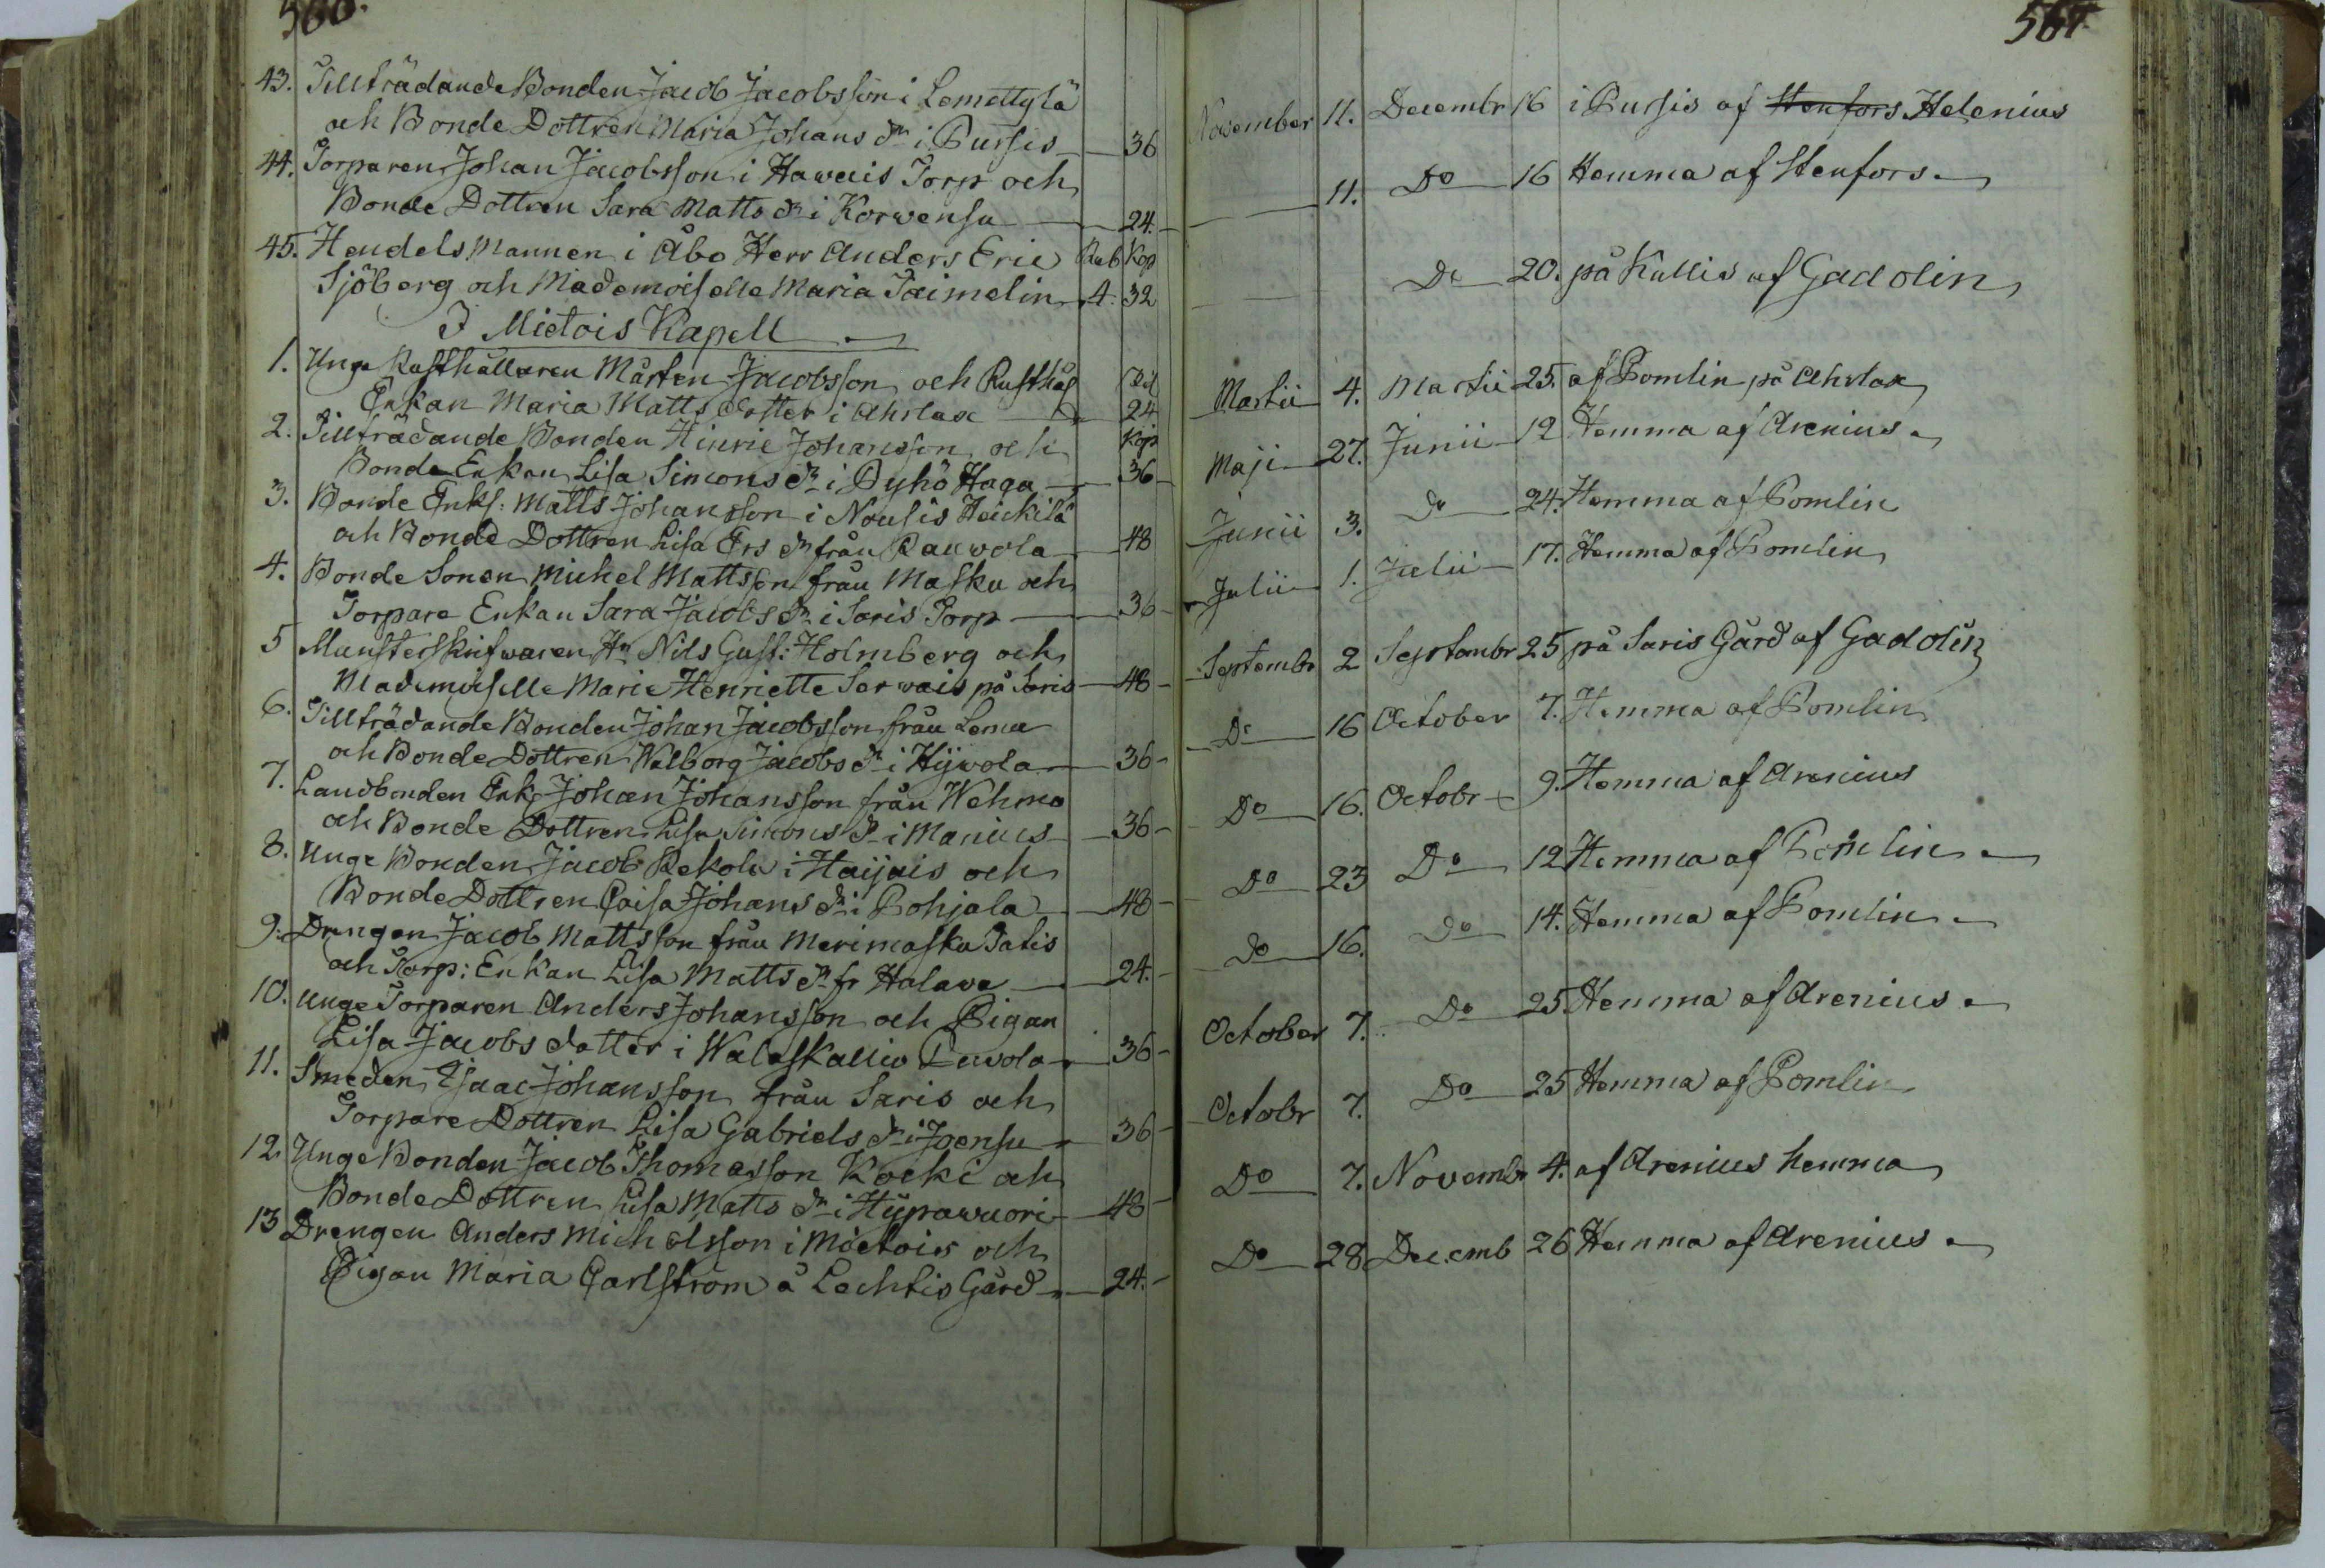 566.
43. Tillträdande Bonden Jacob Jacobsson i Lemettylä
och Bonde Dottren Maria Johans dr i Pursis 36
44. Torparen Johan Jacobsson i Hawais Torp och
Bonde Dottren Sara Matts dr i Korwensu 24.
45. Handels Mannen i Åbo Herr Anders Eric Rub Kop
Sjöberg och Mademoiselle Maria Taimelin 4. 32
I Mietois Kapell
1. Unge Rusthållaren Mårten Jacobsson och Rusthåls
Enkan Maria Matts dotter i Ahrlax 24
2. Tillträdande Bonden Hinric Johansson och Kop
Bonde Enkan Lisa Simons dr i Pyhö Haga 36
3. Bonde Enkl: Matts Johansson i Nousis Heickilä
och Bonde Dottren Lisa Ers dr från Rauwola 48
4. Bonde Sonen Michel Mattsson från Masku och
Torpare Enkan Sara Jacobs dr i Saris Torp 36
5 Munsterskrifwaren Hr Nils Gust: Holmberg och
Mademoiselle Marie Henriette Serwais på Saris 48
6. Tillträdande Bonden Johan Jacobsson från Lemu
och Bonde Dottren Walborg Jacobs dr i Hijwola 36
7. Landbonden Enkl Johan Johansson från Wehmo
och Bonde Dottren Lisa Simons dr i Manius 36
8. Unge Bonden Jacob Rekola i Haijais och
Bonde Dottren Caisa Johans dr i Pohjala 48
9. Drengen Jacob Mattsson från Merimasku Tatis
och Torp: Enkan Lisa Matts dr fr Halawa 24.
10. Unge Torparen Anders Johansson och Pigan
Lisa Jacobs dotter i Walaskallio Pawola 36
11. Smeden Isaac Johansson från Saris och
Torpare Dottren Lisa Gabriels dr i Joensu 36
12. Unge Bonden Jacob Thomasson Kocki och
Bonde Dottren Lisa Matts dr i Hijpawuori 48
13 Drengen Anders Michelsson i Mietois och
Pigan Maria Carlstrom å Lechtis Gård 24.
567.
November 11. Decembr 16 i Pursis af Stenfors Helenius
11. Do 16 Hemma af Stenfors
Do 20. på Kallis af Gadolin
Martii 4. Martii 25. af Pomlin på Ahrlax
Maji 27. Junii 12 Hemma af Arenius
Junii 3. Do 24. Hemma af Pomlin
Julii 1. Julii 17. Hemma af Pomlin
Septembr 2 Septembr 25 på Saris Gård af Gadolin
Do 16 October 7. Hemma af Pomlin
Do 16. Octobr 9. Hemma af Arenius
Do 23 Do 12 Hemma af Pomlin
Do 16. Do 14. Hemma af Pomlin
October 7. Do 25 Hemma af Arenius
Octobr 7. Do 25 Hemma af Pomlin
Do 7. Novembr 4. af Arenius hemma
Do 28 Decemb 26 Hemma af Arenius